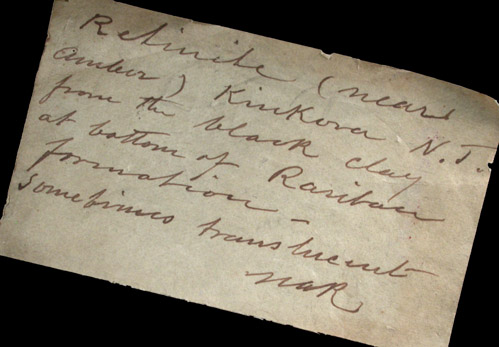 Retinite (near
amber) Kinkora N.J.
from the black clay
at bottom of Raritan
formation -
sometimes translucent